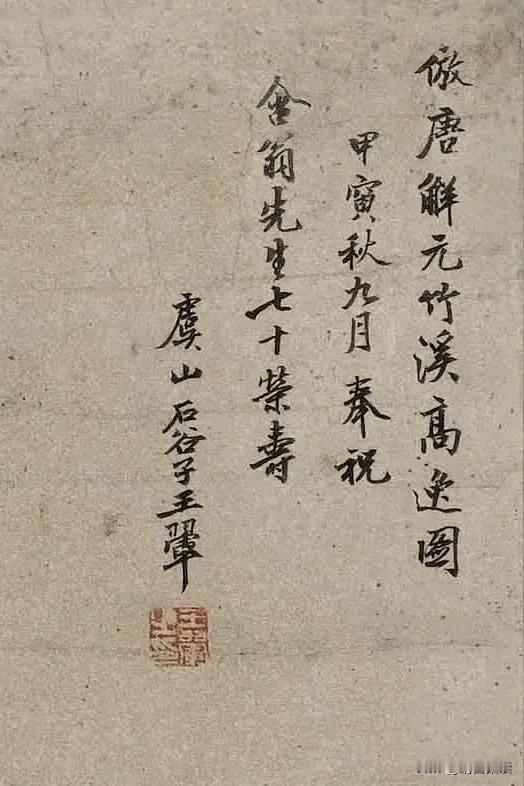 倣唐解元竹溪高逸圖
甲寅秋九月奉祝
含翁先生七十榮壽
虞山石谷子王翬
王翬之印